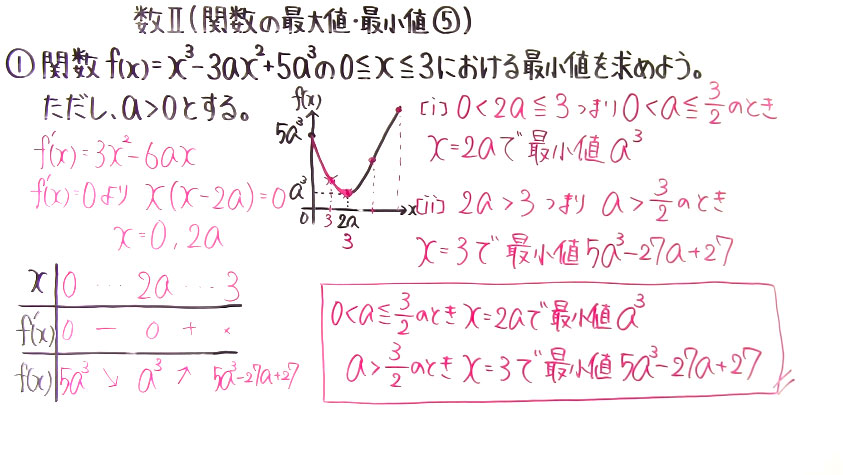 数Ⅱ(関数の最大値・最小値⑤)
①関数 f(x)=x³-3ax²+5a³の0≦x≦3における最小値を求めよう。
ただし、a>0とする。
f'(x)=3x²-6ax
f'(x)=0より x(x-2a)=0
x=0,2a
x 0 … 2a … 3
f'(x) 0 - 0 + ×
f(x) 5a³ ↘ a³ ↗ 5a³-27a+27
f(x)
5a³
a³
0 3 2a x
3
(i) 0<2a≦3つまり0<a≦3/2のとき
x=2aで最小値a³
(ii) 2a>3つまり a>3/2のとき
x=3で最小値5a³-27a+27
0<a≦3/2のときx=2aで最小値a³
a>3/2のときx=3で最小値5a³-27a+27